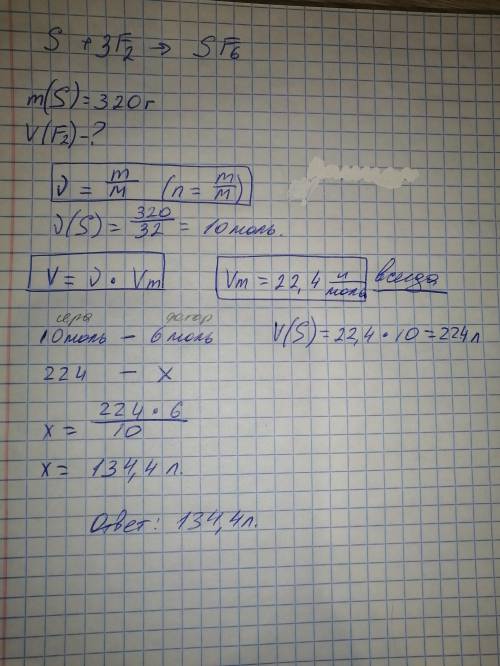 S + 3F₂ → SF₆
m(S) = 320 г
V(F₂) - ?
ν = m/M (n = m/M)
ν(S) = 320/32 = 10 моль.
V = ν · Vm
Vm = 22,4 л/моль всегда
сера фтор
10 моль – 6 моль
V(S) = 22,4 · 10 = 224 л
224 – x
x = 224 · 6 / 10
x = 134,4 л.
Ответ: 134,4 л.